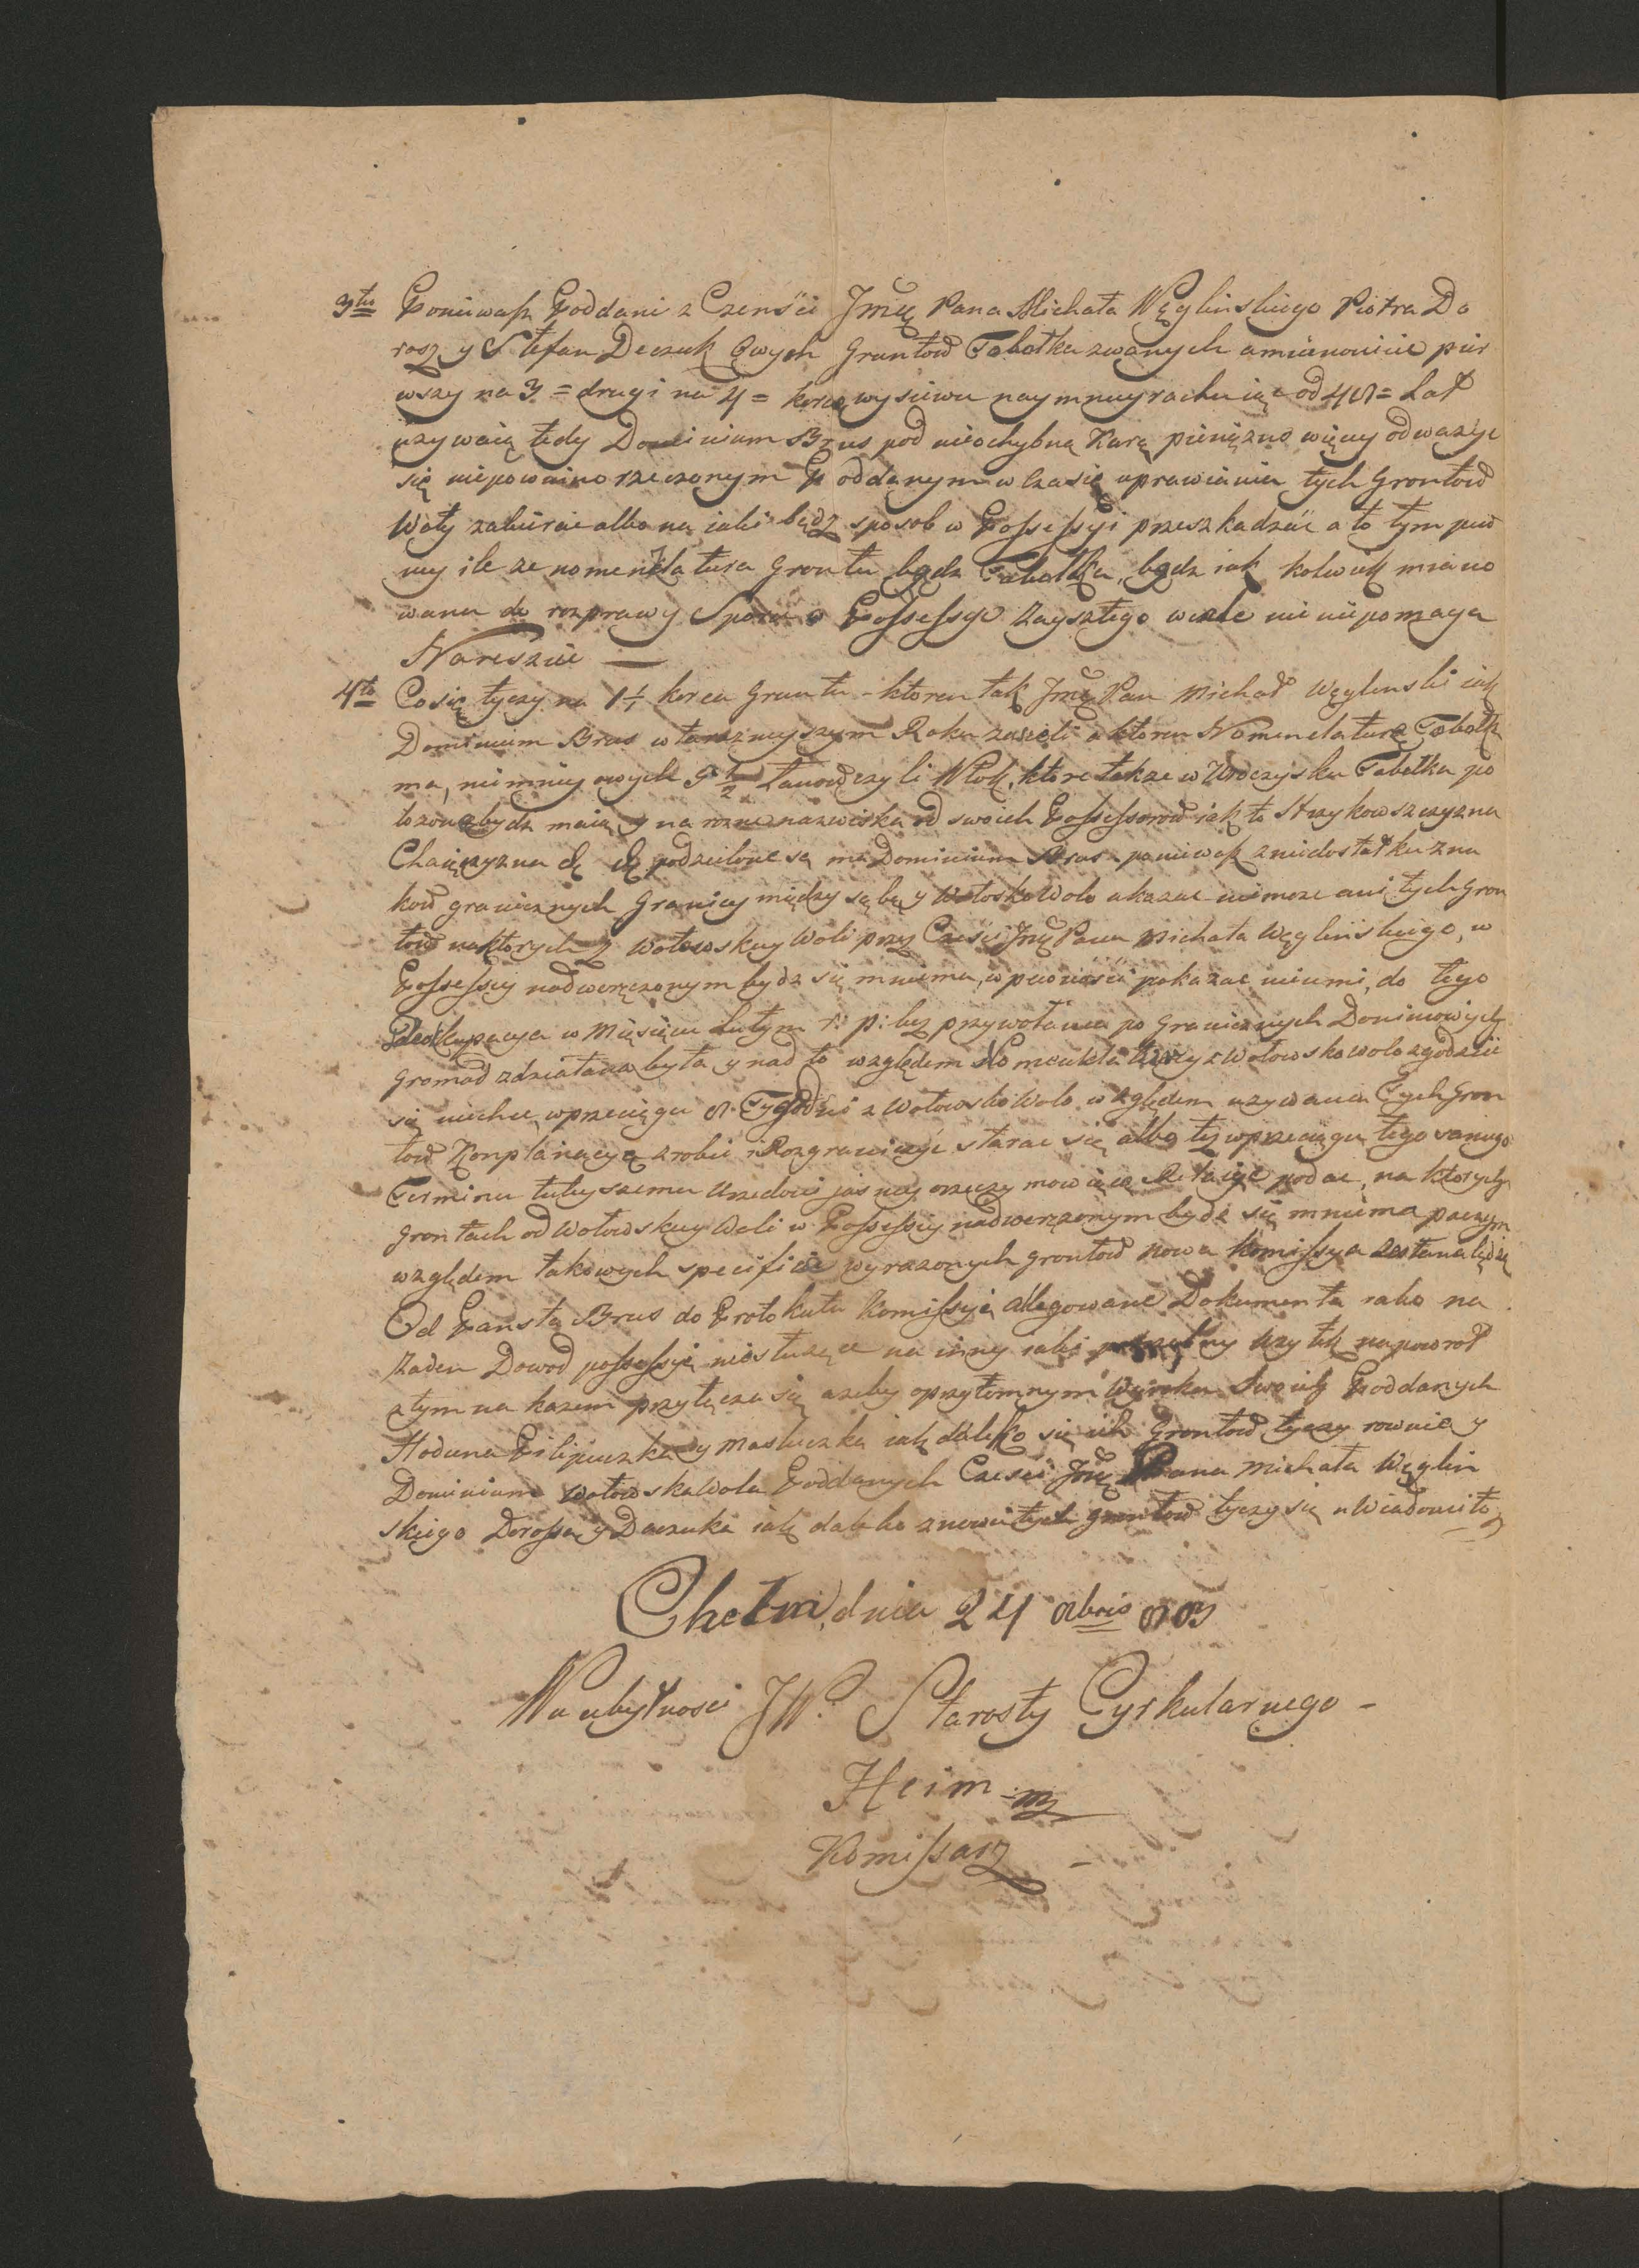 3tio Poniewasz Poddani z Czenści Jmć Pana Michała Węglinskiego Piotra Do
rosz y Stefan Deczuk Owych Gruntow Tabołka zwanych a mianowicie pier
wszy na 3 = drugi na 4 = korce wysiewu naymniey rachuiąc od 40 = Lat
uzywaią tedy Dominium Brus pod nieochybną Karą pienięzną więcy odwazyc
się niepowinno rzeczonym Poddanym w czasie uprawiania tych Grontow
Woły zabierac albo na iaki bądz sposob w Possessyi przeszkadzać a to tym pew
niey ile ze nomenklatura Grontu bądz Tabołka, bądz iak kolwiek miano
wana do rozprawy Sporu o Possessye Zayszłego wcale nic niepomaga
Nareszcie —
4to Co się tyczy na 1½ korca Gruntu - ktoren tak Jmć Pan Michał Węglenski iak
Dominium Brus w teraznieyszym Roku zasieli a ktoren Nomenclaturę Tabołk
ma, niemniey owych 9½ Łanow czyli Włok, ktore takze w Uroczysku Tabołka po
łozone bydz maią y na rozne nazwiska od swoich Possessorow iak to Strzykowszczyzna
podzielone są ma Dominium Brus poniewasz z niedostatku zna
kow granicznych Granicy między sobą y Wołoską Wolo ukazac niemoze ani tych Gron
tow na ktorych z Wołowskiey Woli przy Czesci Jmć Pana Michała Węglińskiego, w
Possessiey nadweręzonym bydz się mniema, w pewności pokazac nieumi, do tego
Okkupacya w Miesiącu Lutym r: p: bez przywołania po Granicznych Doniniowych
Gromad zdziałana była y nad to względem Nomenklatury z Wołowsko wolo zgodzic
się niechce, w przeciągu 8 Tygodni z Wołowsko Wolo względem uzywania Tych Gron
tow Komplanacyą zrobic i Rozgraniczyc starac się albo tez w przeciągu tego samego
Terminu tuteyszemu Urzedowi jasney rzeczy mowiąc Relacye podac, na ktorych
Grontach od Wołowskiey Woli w Possessiey nadweręzonym bydz się mniema poczym
względem takowych specifice wyrazonych grontow nowa Komissya zesłana będzie
Od Państa Brus do Protokułu Komissyi allegowane Dokumenta iako na
zaden Dowod possessyi niesłuzące na inny iaki potrzebny uzytek napowrot
z tym na kazem przyłącza się azeby oprzytomnym Wyroku Swoich Poddanych
Hoduna Pilipczuka y Masluczka iak daleko się ich Grontow tyczy rownie y
Dominium Wołowska Wola Poddanych Czesci Jmć Pana Michała Węglin
skiego Dorosza y Daczuka iak daleko znowu tych grontow tyczy się uwiadomiło
Chełm dnia 24 8bris 803
W niebytnosci JW. Starosty Cyrkularnego -
Heim mp
Komissarz -